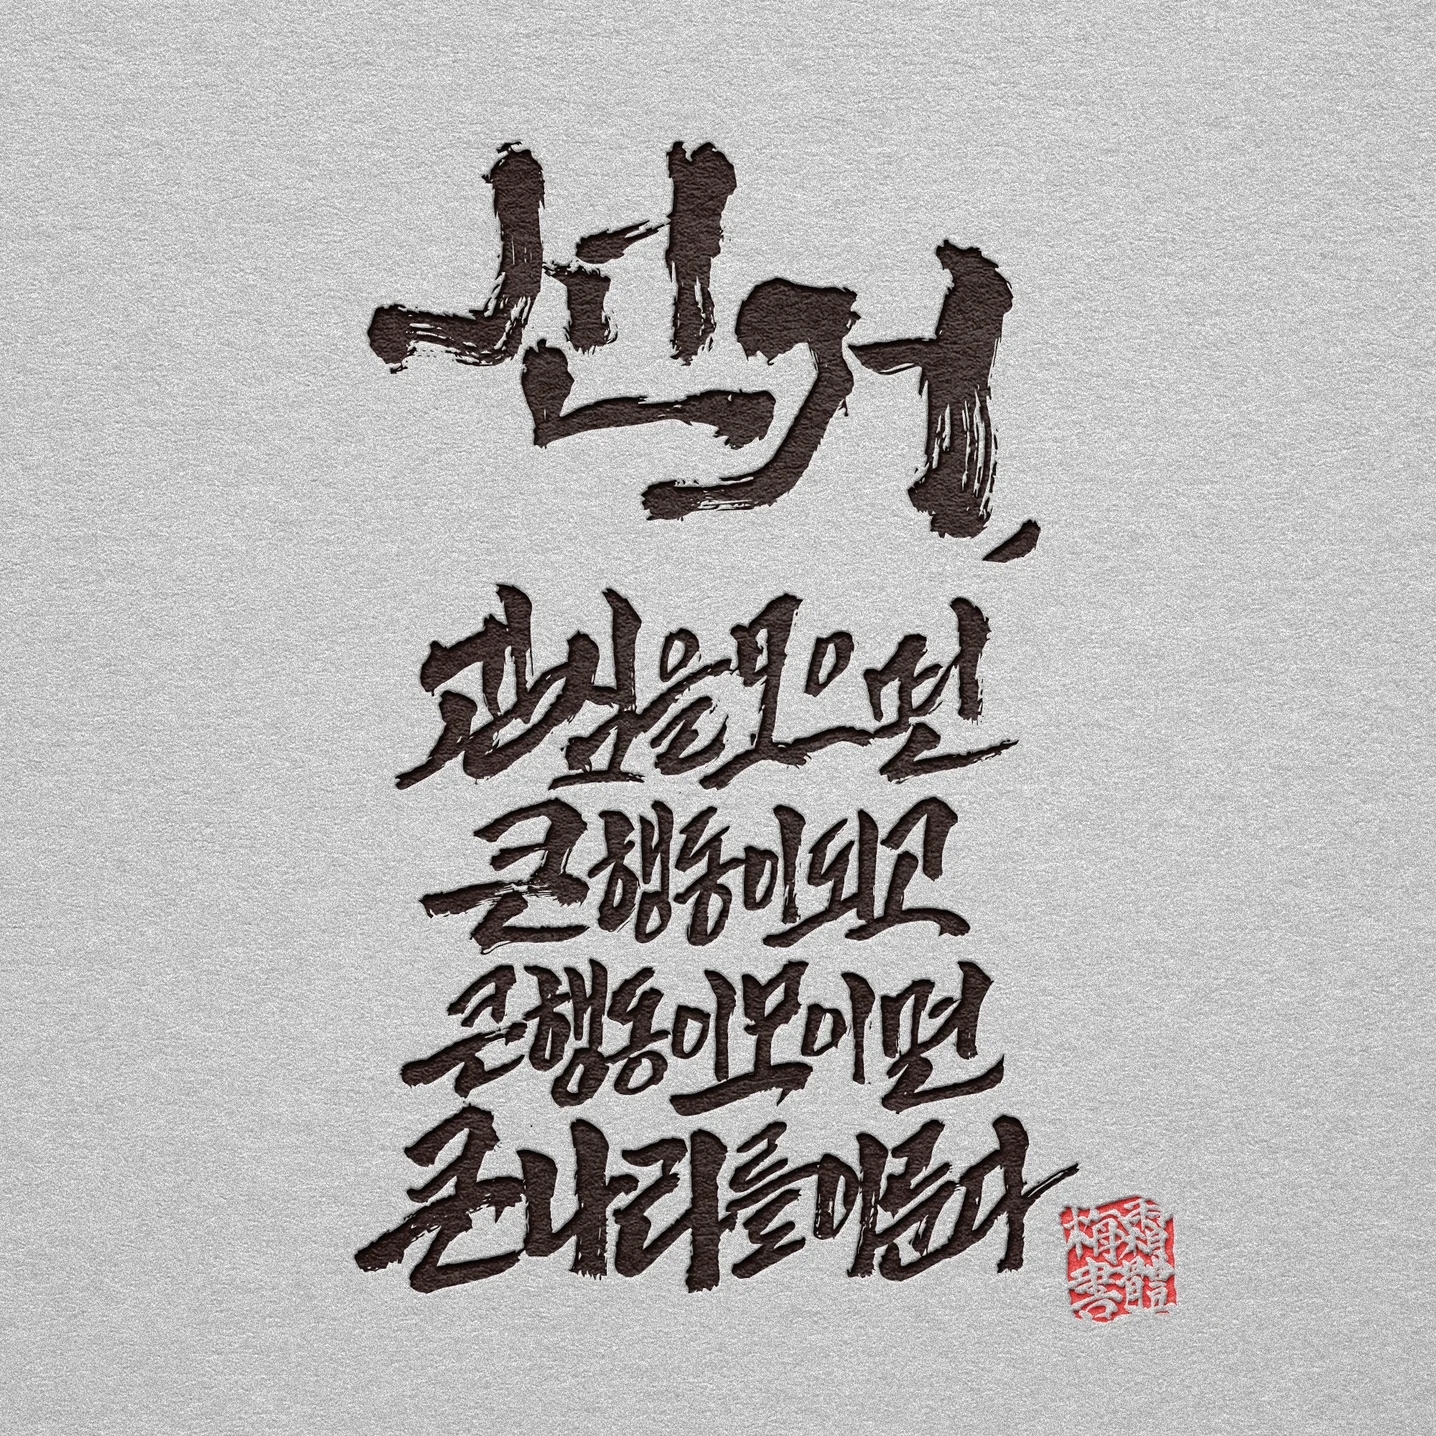 선거,
관심을 모으면
큰 행동이 되고
큰 행동이 모이면
큰 나라를 이룬다